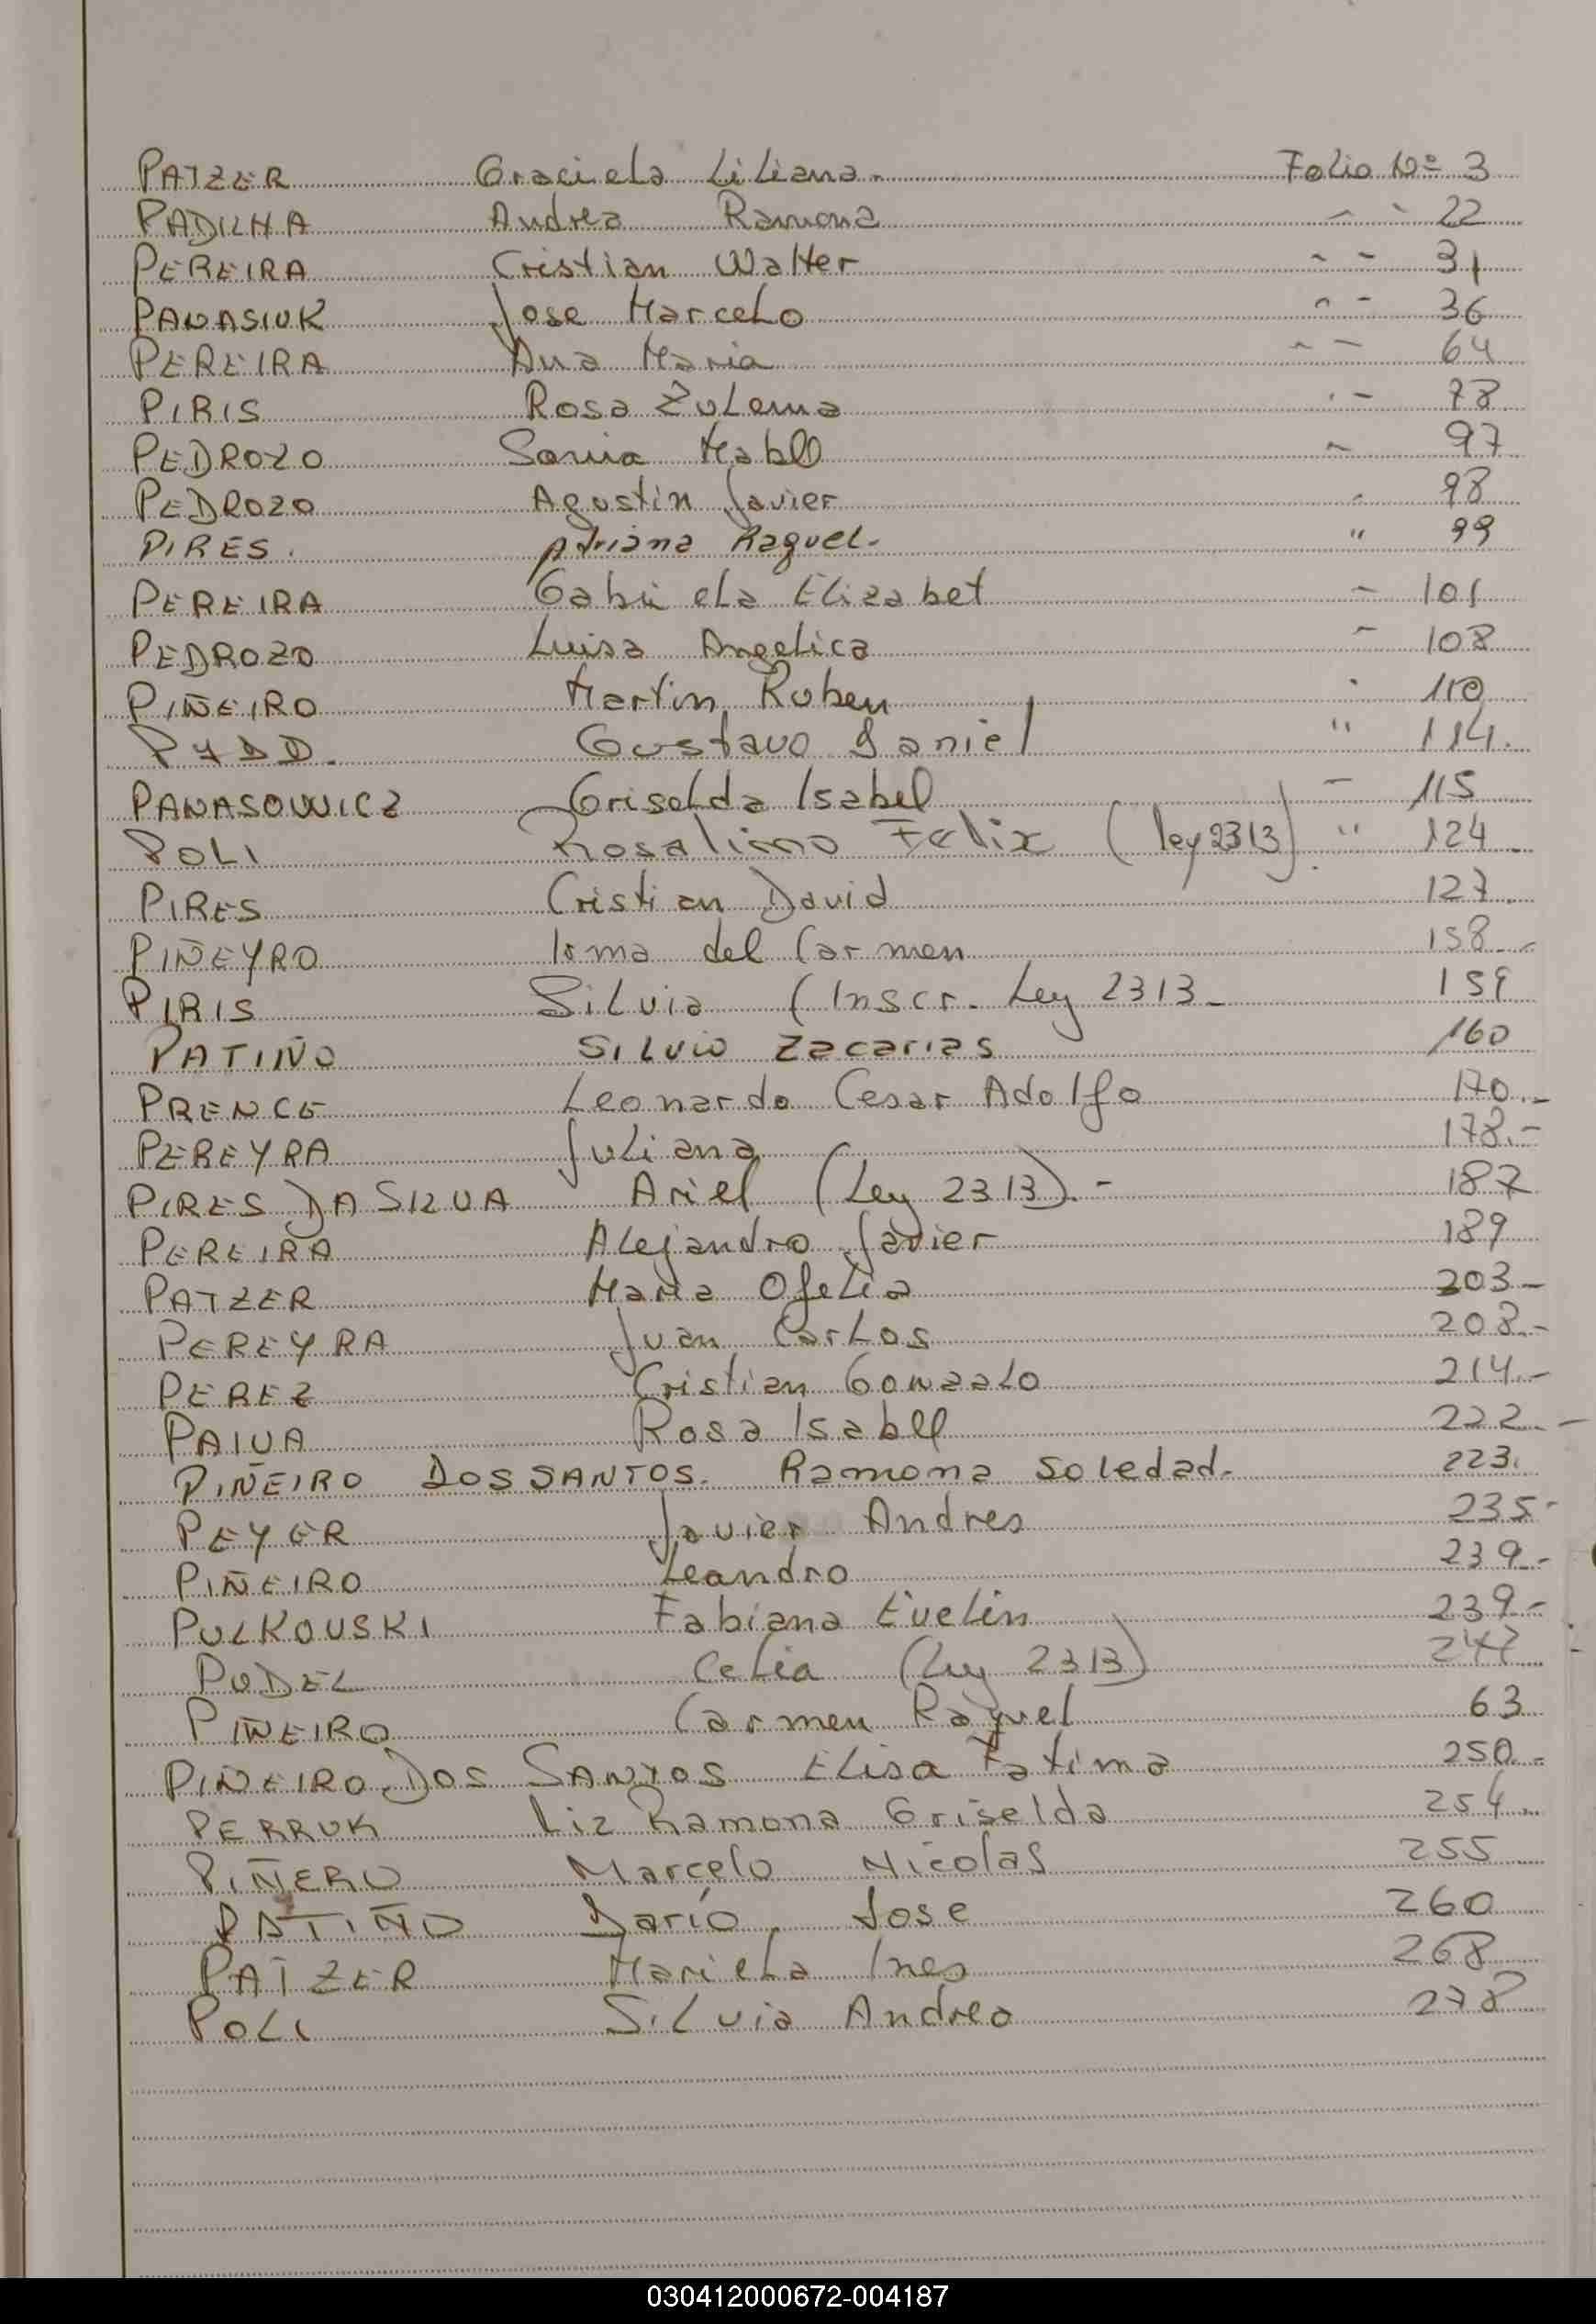 PATZER Graciela Liliana. Folio Nº 3
PADILHA Andrea Ramona " " 22
PEREIRA Cristian Walter " " 31
PANASIUK Jose Marcelo " " 36
PEREIRA Ana Maria " " 64
PIRIS Rosa Zulema " "
PEDROZO Sonia Mabel " 97
PEDROZO Agustin Javier " 98
PIRES. Adriana Raquel. " 99
PEREIRA Gabriela Elizabet " 101
PEDROZO Luisa Angelica " 108
PIÑEIRO Martin Ruben " 110
Gustavo Daniel " 114.
PANASOWICZ Griselda Isabel " 115
POLI Rosalino Felix (ley 2313). " 124.
PIRES Cristian David 127.
PIÑEYRO Irma del Carmen 158.-
PIRIS Silvia (Inscr. Ley 2313- 159
PATIÑO SILVIO Zacarias 160
PRENCE Leonardo Cesar Adolfo 170.-
PEREYRA Juliana 178.-
PIRES DA SILVA Ariel (Ley 2313).- 187
PEREIRA Alejandro Javier 189
PATZER Maria Ofelia 203-
PEREYRA Juan Carlos 208.-
PEREZ Cristian Gonzalo 214.-
PAIVA Rosa Isabel 222.-
PIÑEIRO DOS SANTOS. Ramona Soledad. 223.
PEYER Javier Andres 235-
PIÑEIRO Leandro 239.-
PULKOUSKI Fabiana Evelin 239-
PODEL Celia (Ley 2313) 247
PIÑEIRO Carmen Raquel 63
PIÑEIRO DOS SANTOS Elisa Fatima 250.-
PERRUK Liz Ramona Griselda 254..
PIÑERO Marcelo Nicolas 255
PATIÑO Dario Jose 260
PATZER Mariela Ines 268
POLI Silvia Andrea 278
030412000672-004187